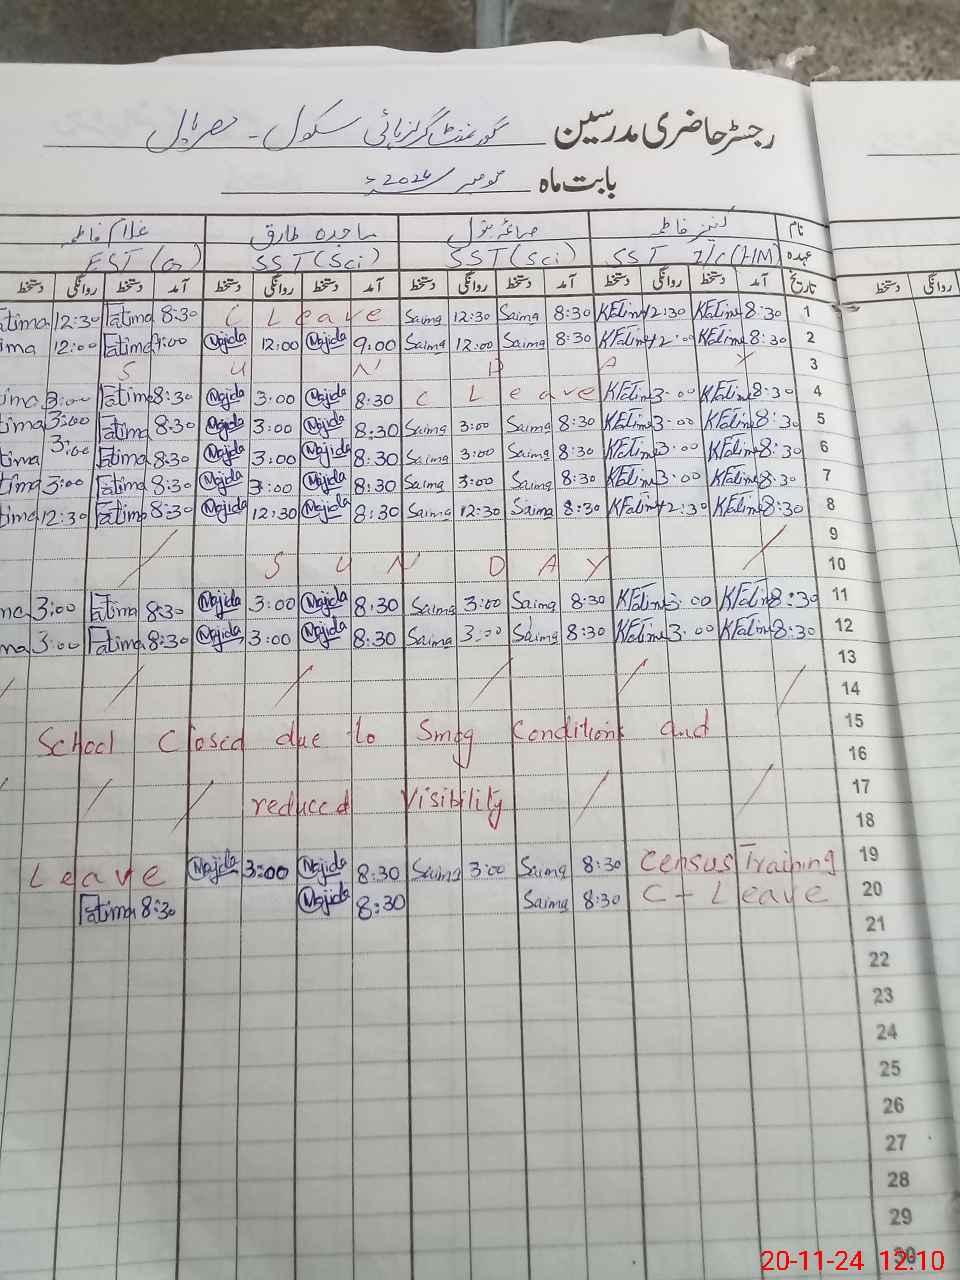 رجسٹر حاضری مدرسین گورنمنٹ گرلز ہائی سکول -
بابت ماہ نومبر 2024ء
نام کنیز فاطمہ صائمہ بتول ماجدہ طارق غلام فاطمہ
عہدہ SST I/C (HM) SST (Sci) SST (Sci) EST (G)
تاریخ آمد دستخط روانگی دستخط آمد دستخط روانگی دستخط آمد دستخط روانگی دستخط آمد دستخط روانگی دستخط دستخط روانگی
atima 12:30 Fatima 8:30 C Leave Saima 12:30 Saima 8:30 KFatima 12:30 KFatima 8:30 1
ima 12:00 Fatima 9:00 Majida 12:00 Majida 9:00 Saima 12:00 Saima 8:30 KFatima 12:00 KFatima 8:30 2
S U N D A Y 3
ima 3:00 Fatima 8:30 Majida 3:00 Majida 8:30 C Leave KFatima 3:00 KFatima 8:30 4
tima 3:00 Fatima 8:30 Majida 3:00 Majida 8:30 Saima 3:00 Saima 8:30 KFatima 3:00 KFatima 8:30 5
tima 3:00 Fatima 8:30 Majida 3:00 Majida 8:30 Saima 3:00 Saima 8:30 KFatima 3:00 KFatima 8:30 6
tima 3:00 Fatima 8:30 Majida 3:00 Majida 8:30 Saima 3:00 Saima 8:30 KFatima 3:00 KFatima 8:30 7
tima 12:30 Fatima 8:30 Majida 12:30 Majida 8:30 Saima 12:30 Saima 8:30 KFatima 12:30 KFatima 8:30 8
9
S U N D A Y 10
ma 3:00 Fatima 8:30 Majida 3:00 Majida 8:30 Saima 3:00 Saima 8:30 KFatima 3:00 KFatima 8:30 11
ma 3:00 Fatima 8:30 Majida 3:00 Majida 8:30 Saima 3:00 Saima 8:30 KFatima 3:00 KFatima 8:30 12
13
14
School Closed due to Smog Conditions and 15
16
reduced Visibility 17
18
Leave Majida 3:00 Majida 8:30 Saima 3:00 Saima 8:30 Census Training 19
Fatima 8:30 Majida 8:30 Saima 8:30 C - Leave 20
21
22
23
24
25
26
27
28
29
30
20-11-24 12:10